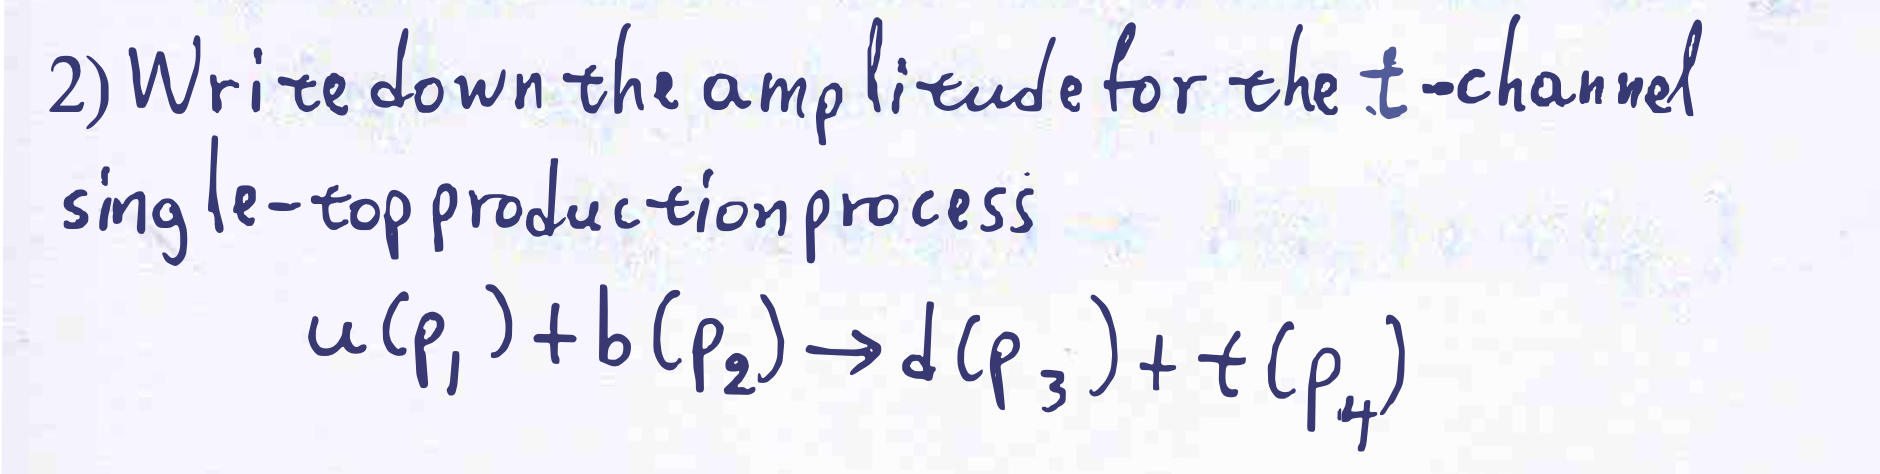 2) Write down the amplitude for the t-channel
single-top production process
u(p₁)+b(p₂)→d(p₃)+t(p₄)